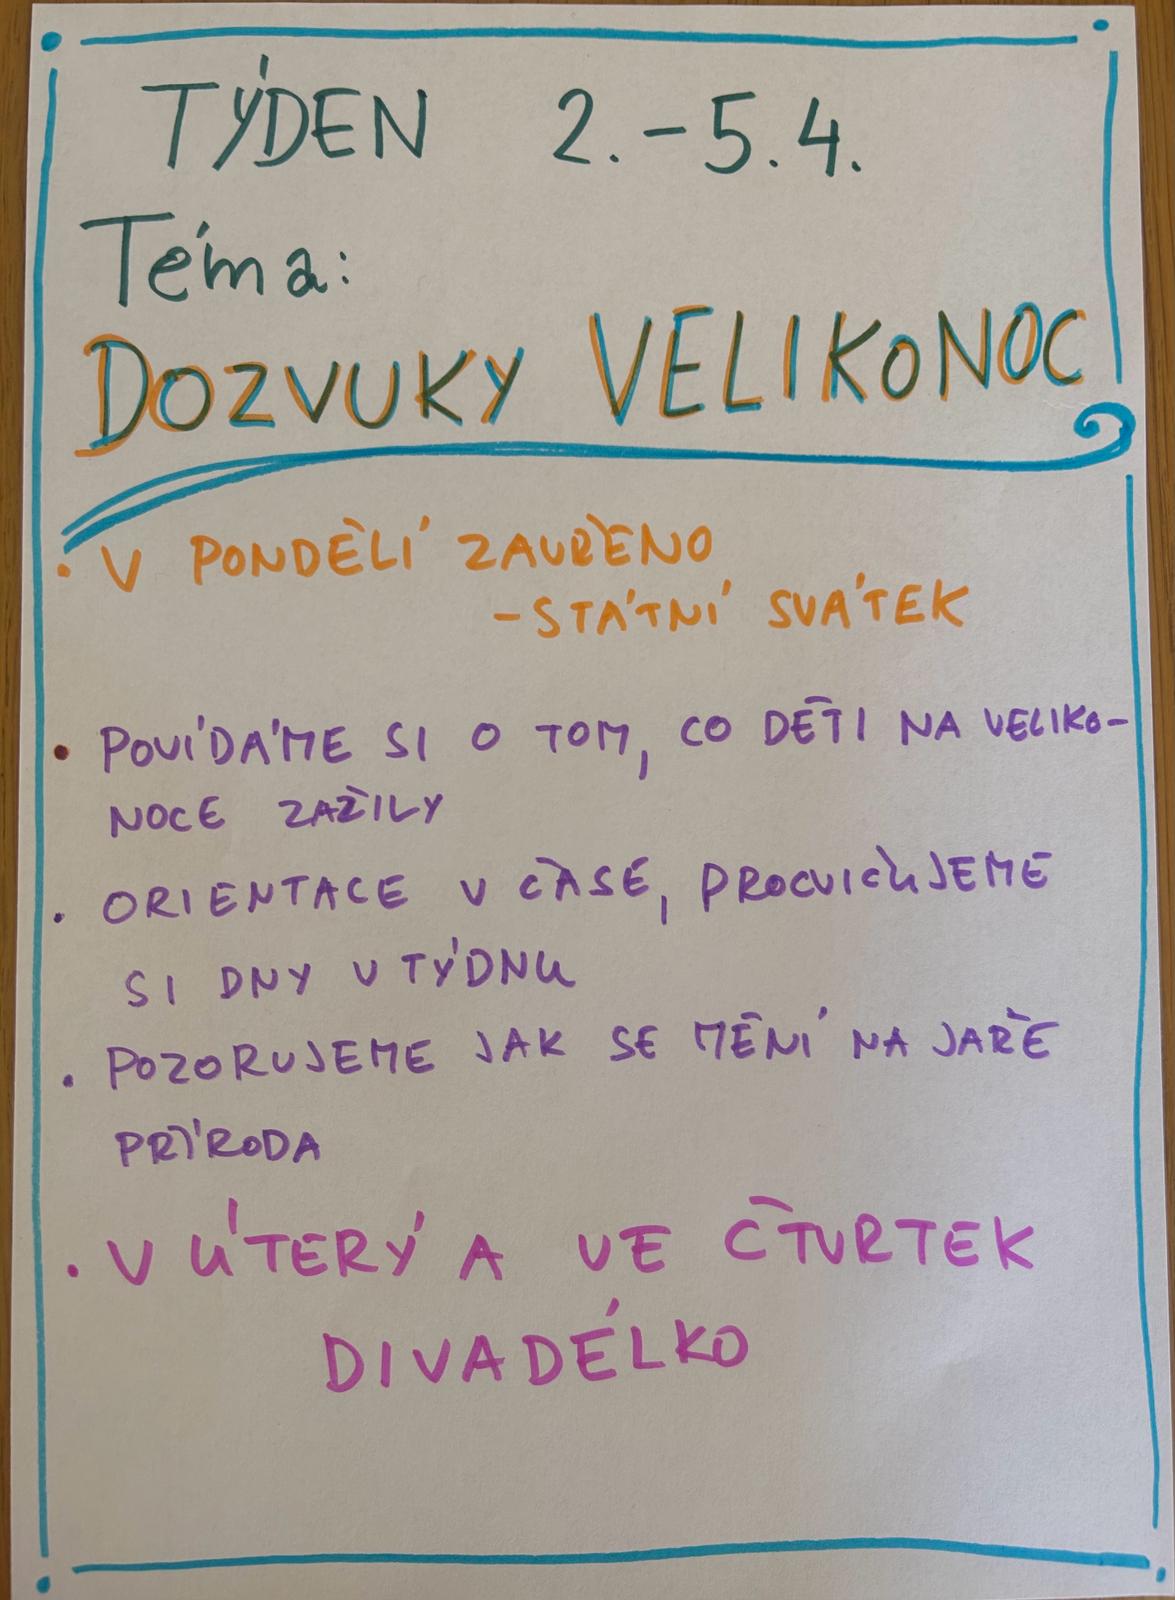 TÝDEN 2.-5.4.
Téma:
DOZVUKY VELIKONOC
• V PONDĚLÍ ZAVŘENO
- STÁTNÍ SVÁTEK
• POVÍDÁME SI O TOM, CO DĚTI NA VELIKO-
NOCE ZAŽILY
• ORIENTACE V ČASE, PROCVIČUJEME
SI DNY V TÝDNU
• POZORUJEME JAK SE MĚNÍ NA JAŘE
PŘÍRODA
• V ÚTERÝ A VE ČTVRTEK
DIVADÉLKO